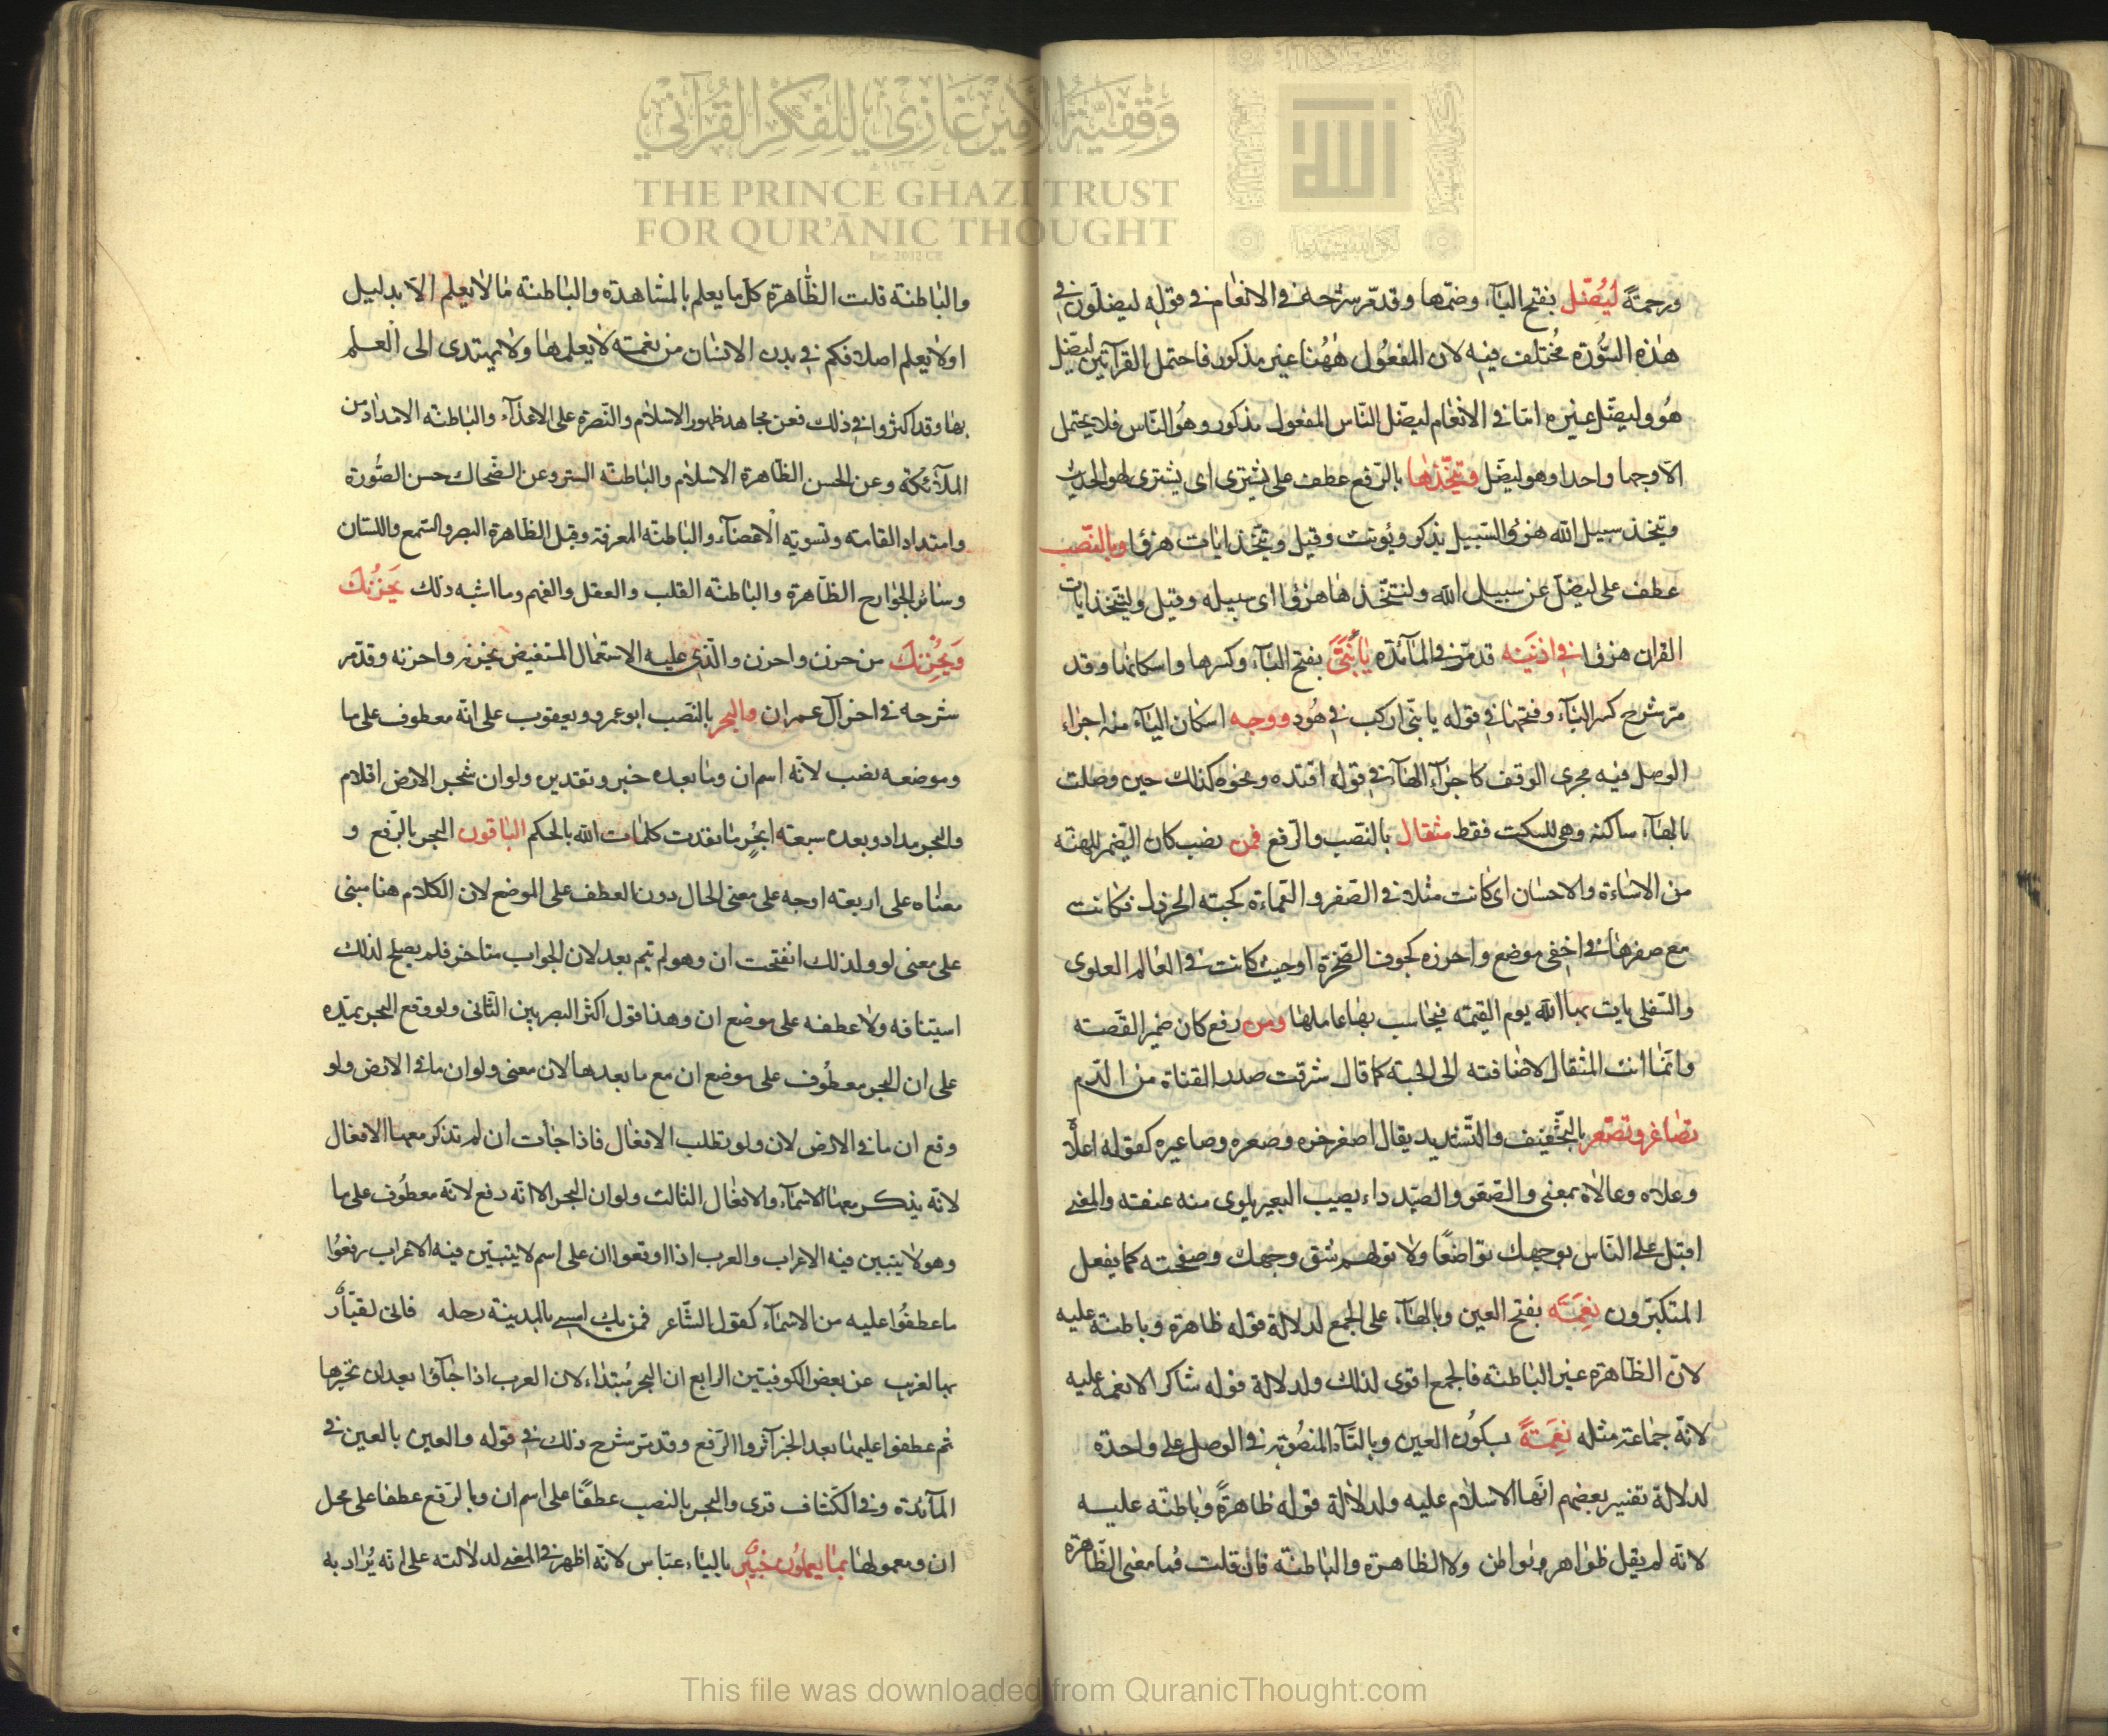 ورحمةً ليضل بفتح اليآء وضمها وقد مر شرحه في الانعام في قوله ليضلون في
هذه السورة مختلف فيه لان المفعول ههنا غير مذكور فاحتمل القرآتين ليضل
هو وليضل غيره اما في الانعام ليضل الناس المفعول مذكور وهو الناس فلا يحتمل
الا وجها واحدا وهو ليضل ويتخذها بالرفع عطف على يشترى اى يشترى لهو الحديث
ويتخذ سبيل الله هزوا والسبيل يذكر ويؤنث وقيل ويتخذ ايات هزؤا وبالنصب
عطف على ليضل عن سبيل الله ولتتخذها هزؤا اى سبيله وقيل وليتخذ ايات
القران هزؤا في اذنيه قد مر في المآئدة يا بنى بفتح اليآء وكسرها واسكانها وقد
مر شرح كسر اليآء وفتحها في قوله يا بنى اركب في هود ووجه اسكان اليآء منه اجراء
الوصل فيه مجرى الوقف كاجرآء الهآء في قوله اقتده ونحوه كذلك حين وصلت
بالهآء ساكنة وهى للسكت فقط مثقال بالنصب والرفع فمن نصب كان الضمير للهنة
من الاساءة والاحسان اى كانت مثلا في الصغر والقماءة كحبة الخردل فكانت
مع صغرها في اخفى موضع واحرزه كجوف الصخرة او حيث كانت في العالم العلوى
والسفلى يات بها الله يوم القيمة فيحاسب بها عاملها ومن رفع كان ضمير القصة
وانما انث المثقال لاضافته الى الحبة كما قال شرقت صدر القناة من الدم
تصاعر وتصعر بالتخفيف والتشديد يقال اصعر خده وصعره وصاعره كقوله اعلاه
وعلاه وعالاه بمعنى والصعر والصيد داء يصيب البعير يلوى منه عنقه والمعنى
اقبل على الناس بوجهك تواضعًا ولا تولهم شق وجهك وصفحته كما يفعل
المتكبرون نعمه بفتح العين وبالهآء على الجمع لدلالة قوله ظاهرة وباطنة عليه
لان الظاهرة غير الباطنة فالجمع اقوى لذلك ولدلالة قوله شاكر الانعمه عليه
لانه جماعة مثله نعمةً بسكون العين وبالتآء المنصوبة في الوصل على واحدة
لدلالة تفسير بعضهم انها الاسلام عليه ولدلالة قوله ظاهرةً وباطنة عليه
لانه لم يقل ظواهر وبواطن ولا الظاهرة والباطنة فان قلت فما معنى الظاهرة
والباطنة قلت الظاهرة كل ما يعلم بالمشاهدة والباطنة ما لا يعلم الا بدليل
او لا يعلم اصلا فكم في بدن الانسان من نعمة لا يعلمها ولا يهتدى الى العلم
بها وقد اكثروا في ذلك فعن مجاهد ظهور الاسلام والنصرة على الاعدآء والباطنة الامداد من
الملآئكة وعن الحسن الظاهرة الاسلام والباطنة الستر وعن الضحاك حسن الصورة
وامتداد القامة وتسوية الاعضآء والباطنة المعرفة وقيل الظاهرة البصر والسمع واللسان
وسائر الجوارح الظاهرة والباطنة القلب والعقل والفهم وما اشبه ذلك يَحزُنك
ويُحزِنك من حزن واحزن والذى عليه الاستعمال المستفيض يحزنه واحزنه وقد مر
شرحه في اخر آل عمران والبحر بالنصب ابو عمرو ويعقوب على انه معطوف على ما
وموضعه نصب لانه اسم ان وما بعده خبر وتقديره ولو ان شجر الارض اقلام
والبحر مداد وبعده سبعة ابحر ما نفدت كلمات الله بالحكم الباقون البحر بالرفع و
معناه على اربعة اوجه على معنى الحال دون العطف على الموضع لان الكلام هنا مبنى
على معنى لو ولذلك انفتحت ان وهو لم يتم بعد لان الجواب متاخر فلم يصلح لذلك
استينافه ولا عطفه على موضع ان وهذا قول اكثر البصريين الثانى ولو وقع البحر يمده
على ان البحر معطوف على موضع ان مع ما بعدها لان معنى ولو ان ما في الارض ولو
وقع ان ما في الارض لان ولو تطلب الافعال فاذا جاءت ان لم تذكر معها الافعال
لانه يذكر معها الاسمآء والافعال الثالث ولو ان البحر الا انه رفع لانه معطوف على ما
وهو لا يتبين فيه الاعراب والعرب اذا اوقعوا ان على اسم لا يتبين فيه الاعراب رفعوا
ما عطفوا عليه من الاسمآء كقول الشاعر فمن يك امسى بالمدينة رحله فانى لقيار
بها لغريب عن بعض الكوفيين الرابع ان البحر مبتداء لان العرب اذا جآؤا بعد ان بخبرها
ثم عطفوا عليها بعد الخبر آثروا الرفع وقد مر شرح ذلك في قوله والعين بالعين في
المآئدة وفي الكشاف قرى والبحر بالنصب عطفًا على اسم ان وبالرفع عطفا على محل
ان ومعمولها بما يعملون خبير بالياء عباس لانه اظهر في المعنى لدلالته على انه يراد به
وقفية الأمير غازي للفكر القرآني
THE PRINCE GHAZI TRUST
FOR QUR'ĀNIC THOUGHT
Est. 2012 CE
This file was downloaded from QuranicThought.com